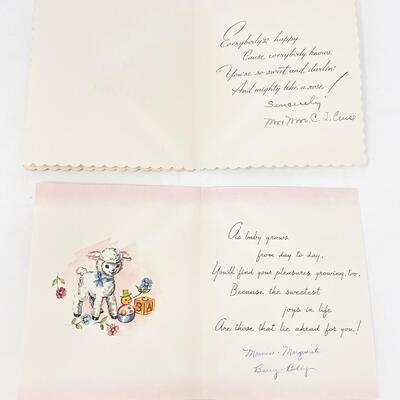 Everybody's happy
Cause, everybody knows
You're so sweet and, darlin'
And mighty like, a rose,!
Sincerely
Mr & Mrs. C. J. Cruse
B A
As baby grows
from day to day,
You'll find your pleasures growing, too,
Because the sweetest
joys in life
Are those that lie ahead for you!
Marguerite